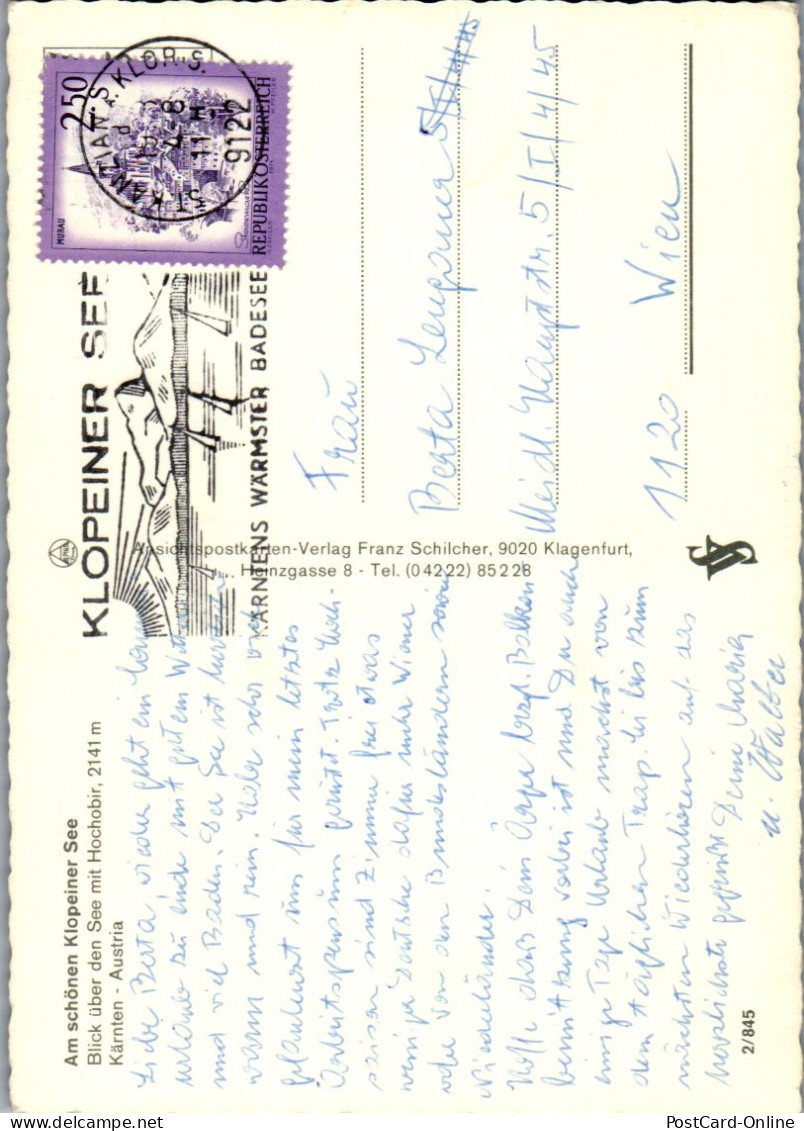 Am schönen Klopeiner See
Blick über den See mit Hochobir, 2141 m
Kärnten - Austria
Liebe Berta wieder geht ein
urlaub zu ende mit gutem
und viel Baden. Der See ist
warm und rein. Habe sehr
für mein letztes
Trotz Hoch-
saison sind Zimmer frei etwas
weniger Deutsche dafür mehr Wiener
oder von den Bundesländern sowie
Niederländer.
Hoffe dass Dein Ärger bezgl. Balkon
vorbei ist und Du auch
einige Tage Urlaub machst von
dem täglichen Trap. bis zum
nächsten Wiederhören auf das
herzlichste gegrüßt Deine Maria
u. Walter
2/845
Ansichtspostkarten-Verlag Franz Schilcher, 9020 Klagenfurt,
Heinzgasse 8 - Tel. (0 42 22) 8 52 28
KLOPEINER SEE
KÄRNTENS WÄRMSTER BADESEE
ST. KANZIAN A. KLOP. S.
11 H
9122
2.50
MURAU
REPUBLIK ÖSTERREICH
Frau
Berta
Meidl. Hauptstr. 5/I/4/45
1120 Wien
PostCard-Online
PostCard-Online.com